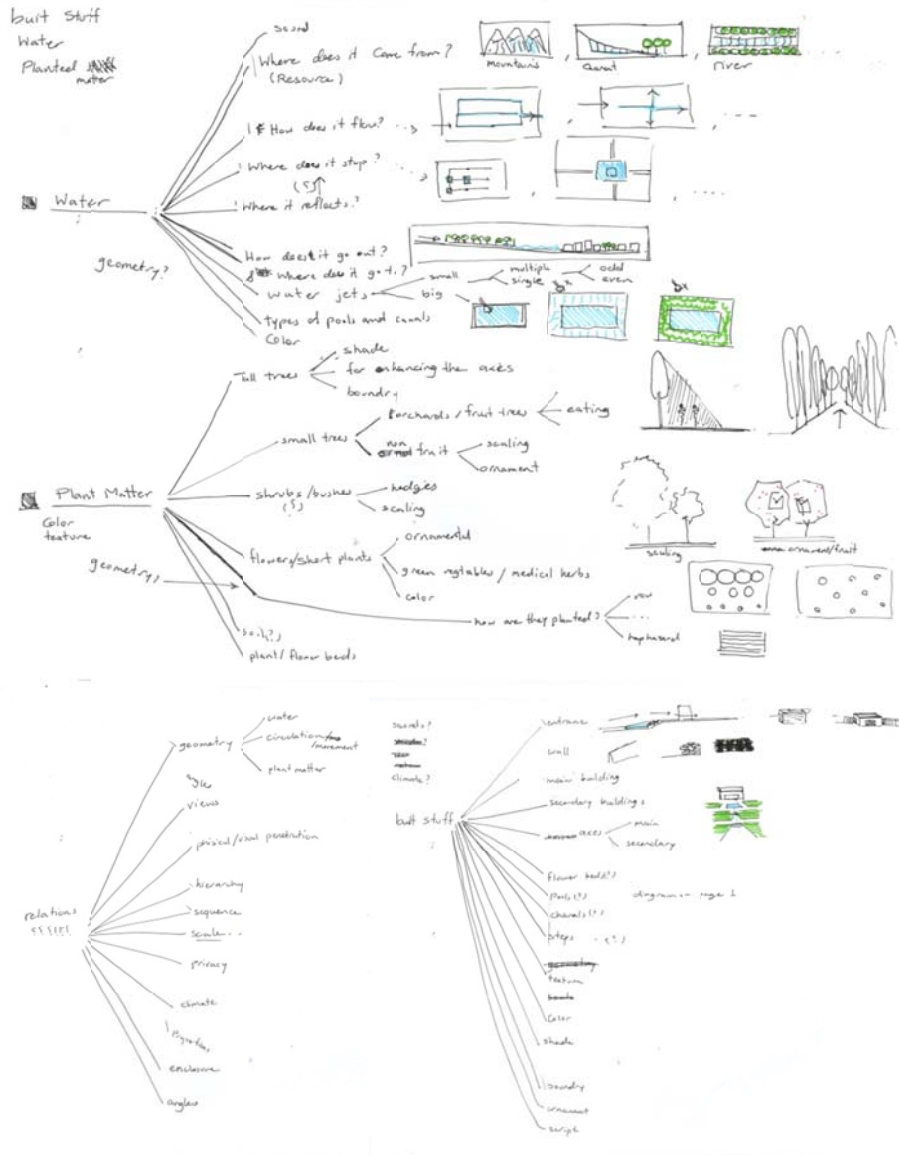 built stuff
Water
Planted
matter
sound
Where does it come from?
(Resource)
mountains
river
How does it flow?
Where does it stop?
(?)
Where it reflects?
Water
geometry?
How does it go out?
Where does it go?
water jets
small
big
multiple
single
odd
even
types of pools and canals
Color
Tall trees
shade
for enhancing the axes
boundry
small trees
orchards / fruit trees
eating
non
fruit
scaling
ornament
Plant Matter
Color
texture
geometry?
shrubs / bushes
(?)
hedgies
scaling
scaling
ornament/fruit
flowers/short plants
ornamental
green vegtables / medical herbs
color
how are they planted?
row
...
haphazard
soil(?)
plant/flower beads
relations
geometry
water
circulation
/movement
plant matter
views
phisical/visual penetration
hierarchy
sequence
scale...
privacy
climate
enclosure
angles
climate?
built stuff
entrance
wall
main building
secondary buildings
axes
main
secondary
flower beds(?)
Pools(?)
diagram on page 1
chanals(?)
steps
(?)
texture
Color
shade
boundry
ornament
script